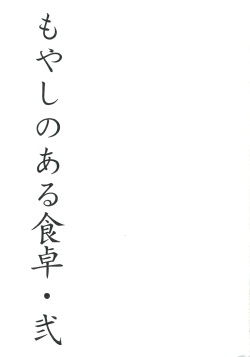 もやしのある食卓・弐